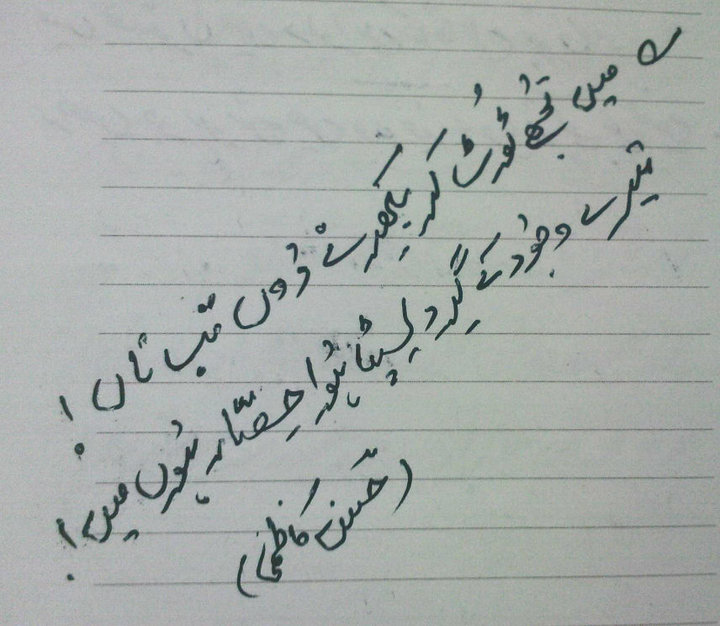 میں تجھے ٹوٹ کر بکھرنے دُوں تب ناں !
تیرے وجُود کے گِرد لپٹا ہُوا حصّار ہُوں میں !
(حَسن کاظمی)